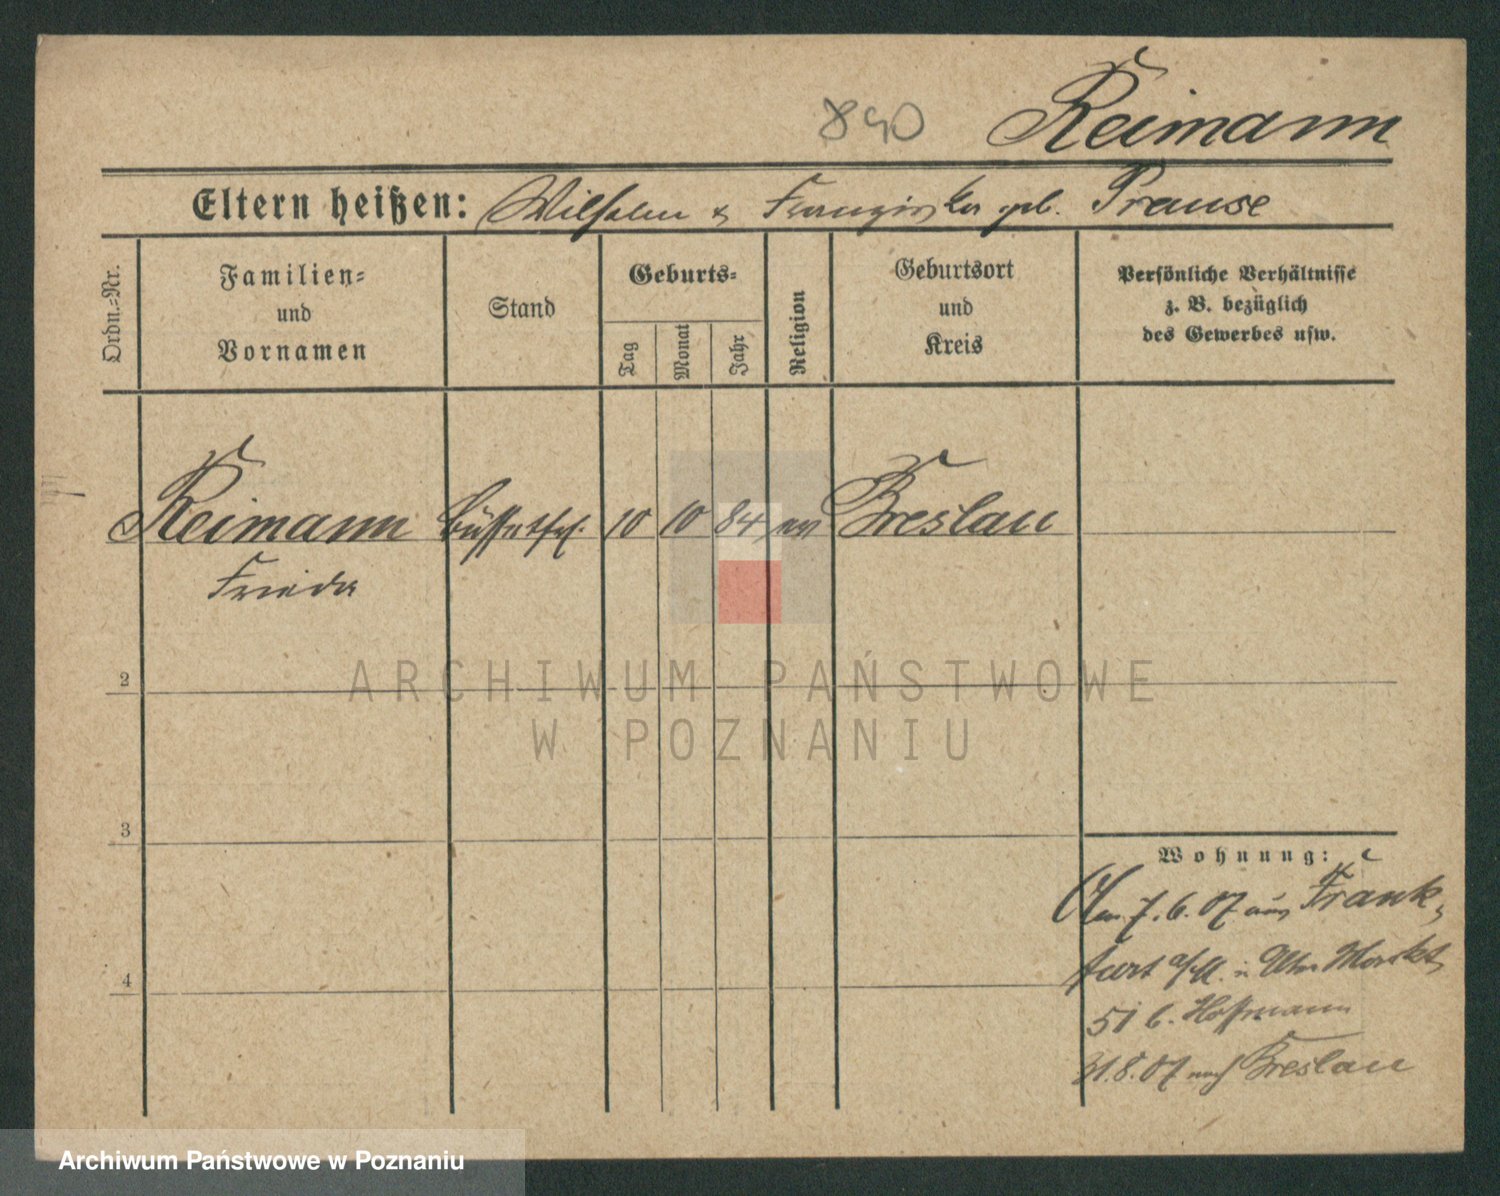 890 Reimann
Eltern heißen: Wilhelm & Franziska geb. Prause
Ordn.=Nr.
Familien=
und
Vornamen
Stand
Geburts=
Tag
Monat
Jahr
Religion
Geburtsort
und
Kreis
Persönliche Verhältnisse
z. B. bezüglich
des Gewerbes usw.
Reimann Büffetfrl. 10 10 84 ev Breslau
Frieda
2
3
4
Wohnung:
Am 7. 6. 07 aus Frank-
furt a/M. Alter Markt
51 b. Hoffmann
31.8.07 nach Breslau
ARCHIWUM PAŃSTWOWE
W POZNANIU
Archiwum Państwowe w Poznaniu